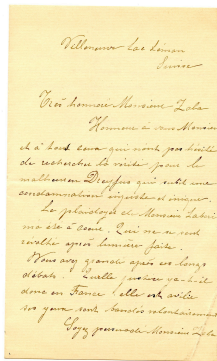 Villeneuve Lac Léman
Suisse
Très honoré Monsieur Zola
Honneur à vous Monsieur
et à tous ceux qui n'ont pas hésité
de rechercher la vérité pour le
malheureux Dreyfus qui subit une
condamnation injuste et inique.
La plaidoyer de Monsieur Labori
m'a été à coeur. Qui ne se sent
révolté après lumière faite.
Vous avez grandi après ces longs
débats. Quelle justice y a-t-il
donc en France, elle est
ses yeux sont bandés volontairement
Soyez persuadé Monsieur Zola